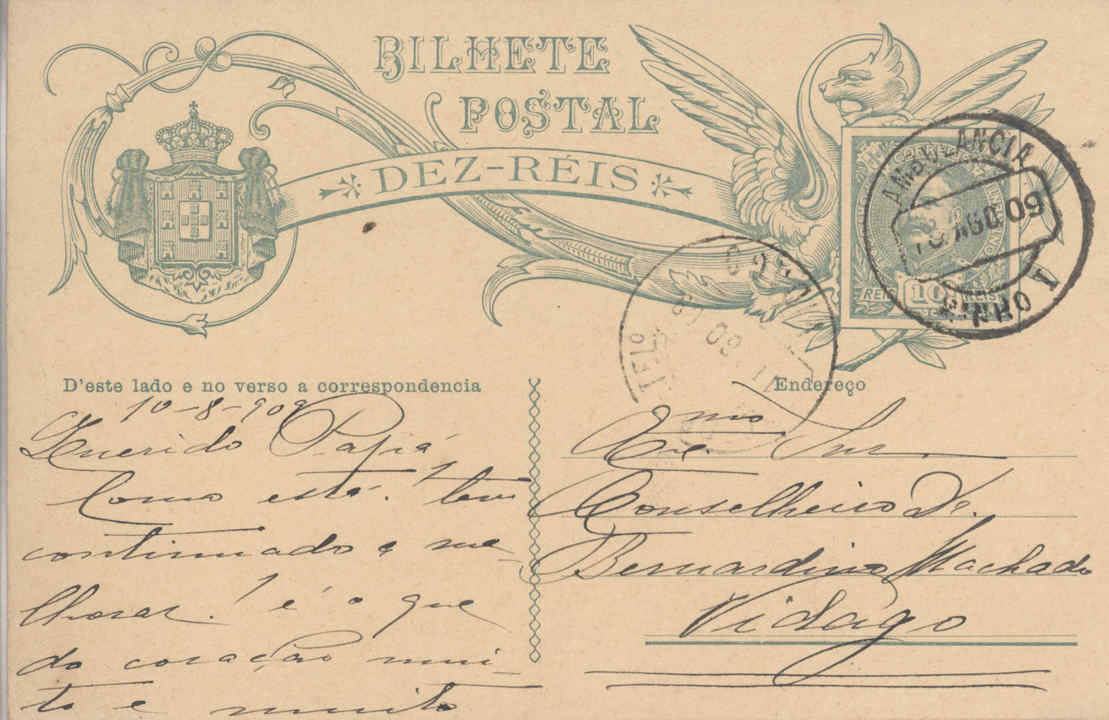 BILHETE
POSTAL
DEZ-RÉIS
AMBULANCIA
10 AGO 09
MINHO I
REIS 10 REIS
TELº
09
D'este lado e no verso a correspondencia
Endereço
10-8-909
Querido Papá
Como está? tem
continuado a me-
lhorar? é o que
do coração mui-
to e muito
Exmo Snr.
Conselheiro Dr.
Bernardino Machado
Vidago